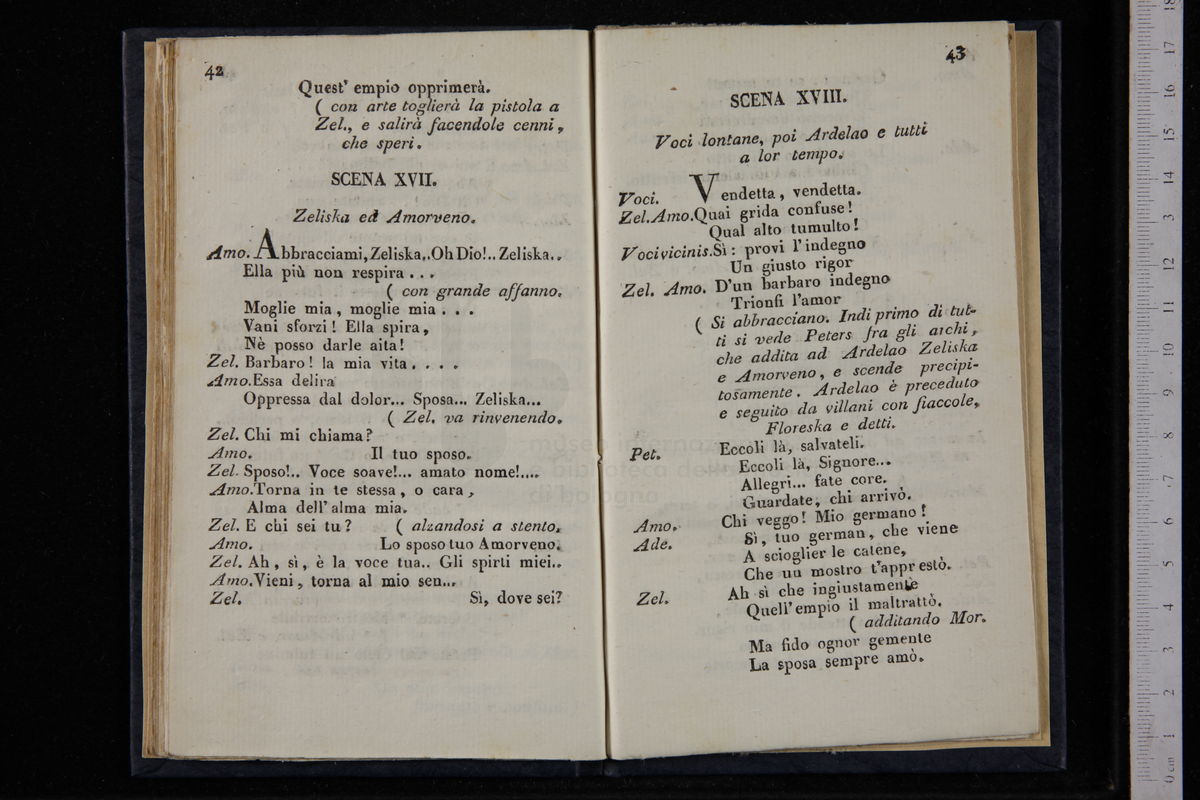 42
Quest' empio opprimerà.
( con arte toglierà la pistola a
Zel., e salirà facendole cenni,
che speri.
SCENA XVII.
Zeliska ed Amorveno.
Amo. Abbracciami, Zeliska,.Oh Dio!.. Zeliska..
Ella più non respira . . .
( con grande affanno.
Moglie mia, moglie mia . . .
Vani sforzi! Ella spira,
Nè posso darle aita!
Zel. Barbaro! la mia vita. . . .
Amo. Essa delira
Oppressa dal dolor... Sposa... Zeliska...
( Zel. va rinvenendo.
Zel. Chi mi chiama?
Amo. Il tuo sposo.
Zel. Sposo!.. Voce soave!... amato nome!....
Amo. Torna in te stessa, o cara,
Alma dell' alma mia.
Zel. E chi sei tu? ( alzandosi a stento.
Amo. Lo sposo tuo Amorveno.
Zel. Ah, sì, è la voce tua.. Gli spirti miei..
Amo. Vieni, torna al mio sen...
Zel. Sì, dove sei?
43
SCENA XVIII.
Voci lontane, poi Ardelao e tutti
a lor tempo.
Voci. Vendetta, vendetta.
Zel. Amo. Quai grida confuse!
Qual alto tumulto!
Voci vicinis. Sì: provi l'indegno
Un giusto rigor
Zel. Amo. D'un barbaro indegno
Trionfi l'amor
( Si abbracciano. Indi primo di tut-
ti si vede Peters fra gli archi,
che addita ad Ardelao Zeliska
e Amorveno, e scende precipi-
tosamente. Ardelao è preceduto
e seguito da villani con fiaccole,
Floreska e detti.
Pet. Eccoli là, salvateli.
Eccoli là, Signore...
Allegri... fate core.
Guardate, chi arrivò.
Amo. Chi veggo! Mio germano!
Ade. Sì, tuo german, che viene
A scioglier le catene,
Che un mostro t'apprestò.
Zel. Ah sì che ingiustamente
Quell' empio il maltrattò.
( additando Mor.
Ma fido ognor gemente
La sposa sempre amò.
museo internaz
e biblioteca de
di bologna
0 cm 1 2 3 4 5 6 7 8 9 10 11 12 13 14 15 16 17 18